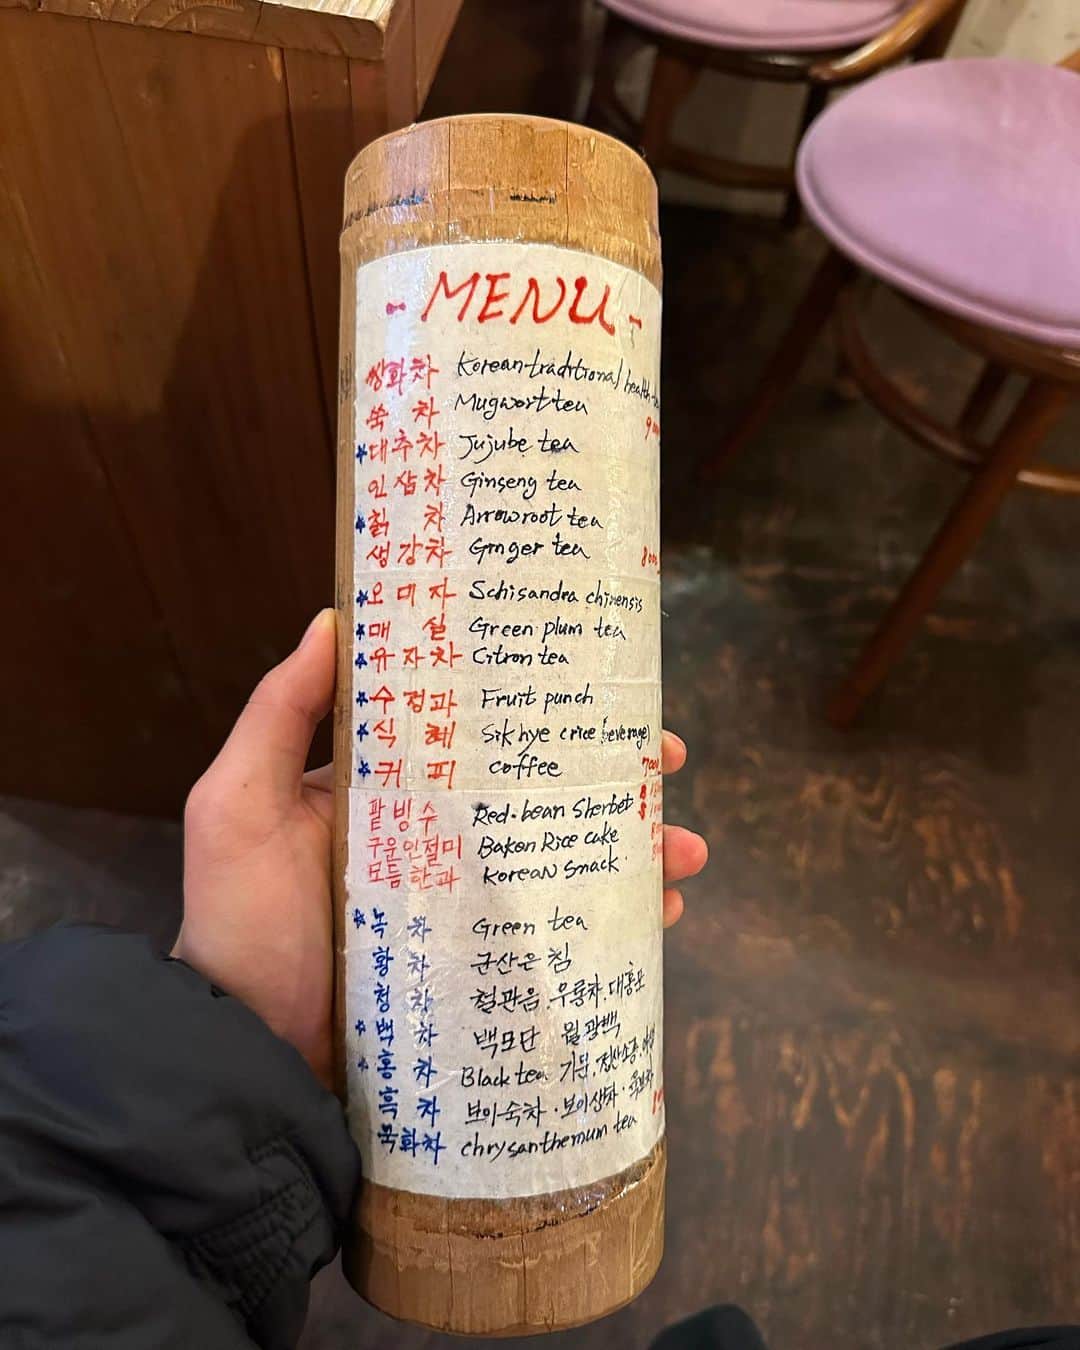 - MENU -
쌍화차 Korean traditional health
쑥 차 Mugwort tea
대추차 Jujube tea
인삼차 Ginseng tea
칡 차 Arrowroot tea
생강차 Ginger tea
오미자 Schisandra chinensis
매 실 Green plum tea
유자차 Citron tea
수정과 Fruit punch
식 혜 Sik hye (rice beverage)
커 피 coffee
팥빙수 Red-bean Sherbet
구운인절미 Baken Rice cake
모듬한과 Korean Snack
녹 차 Green tea
황 차 군산은침
청 차 철관음. 우롱차. 대홍포
백 차 백모단 월광백
홍 차 Black tea 기문. 정산소종.
흑 차 보이숙차. 보이생차.
국화차 chrysanthemum tea